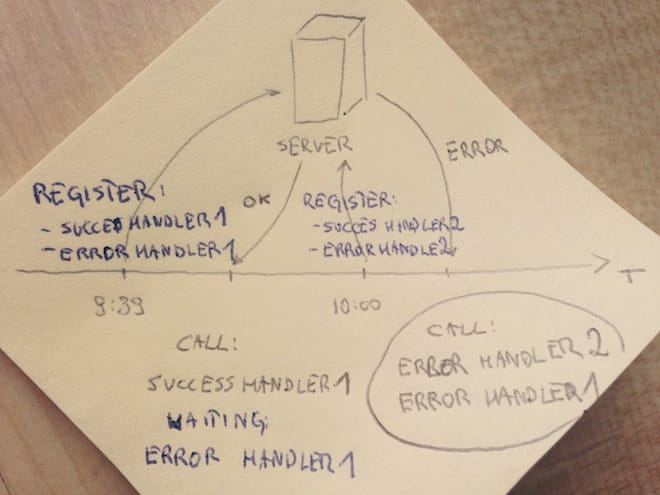 SERVER
ERROR
REGISTER:
- SUCCES HANDLER1
- ERROR HANDLER1
OK
REGISTER:
- SUCCES HANDLER2
- ERROR HANDLE2
T
9:39
10:00
CALL:
SUCCESS HANDLER1
WAITING:
ERROR HANDLER1
CALL:
ERROR HANDLER2
ERROR HANDLER1